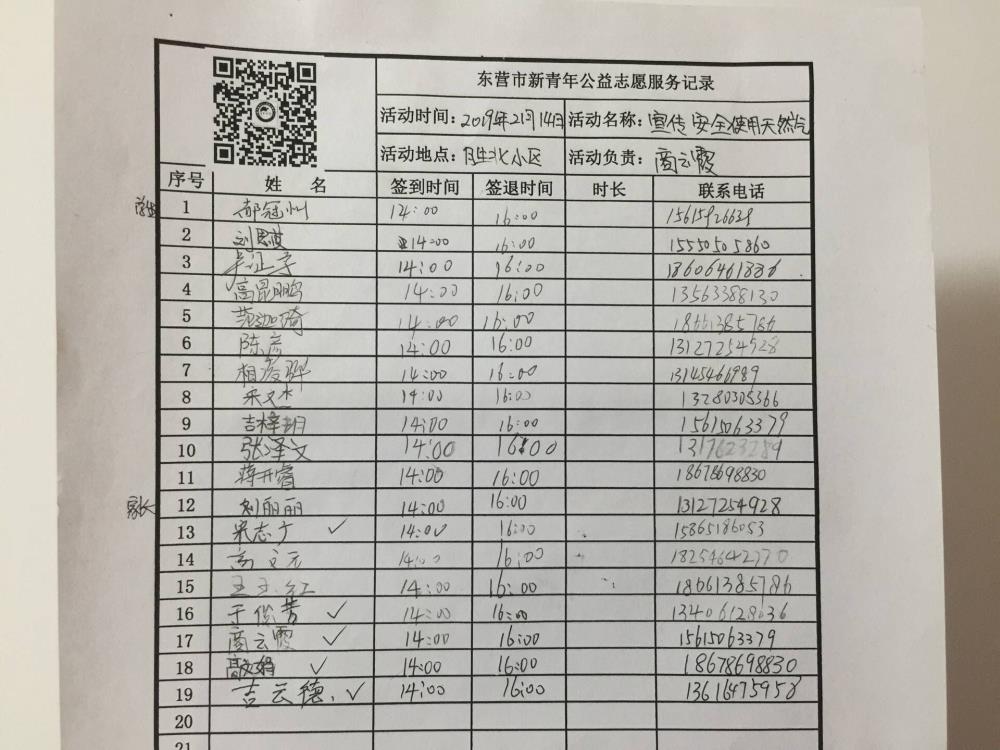 东营市新青年公益志愿服务记录
活动时间：2019年2月14日 活动名称：宣传安全使用天然气
活动地点：胜北小区 活动负责：商云霞
序号 姓 名 签到时间 签退时间 时长 联系电话
学生 1 郝冠州 14:00 16:00 15615926639
2 14:00 16:00 15550505860
3 14:00 16:00 18606461886
4 高昆鹏 14:00 16:00 13563388130
5 14:00 16:00 18661385786
6 陈彦 14:00 16:00 13127254928
7 14:00 16:00 13145466989
8 14:00 16:00 13280305366
9 吉梓玥 14:00 16:00 15615063379
10 张泽文 14:00 16:00 1317623289
11 蒋开睿 14:00 16:00 18678698830
家长 12 刘丽丽 14:00 16:00 13127254928
13 宋志广 ✓ 14:00 16:00 15865186053
14 高文元 14:00 16:00 18254642770
15 王玉红 14:00 16:00 18661385786
16 于俊芳 ✓ 14:00 16:00 13406128036
17 商云霞 ✓ 14:00 16:00 15615063379
18 ✓ 14:00 16:00 18678698830
19 吉云德 ✓ 14:00 16:00 13616475958
20
21